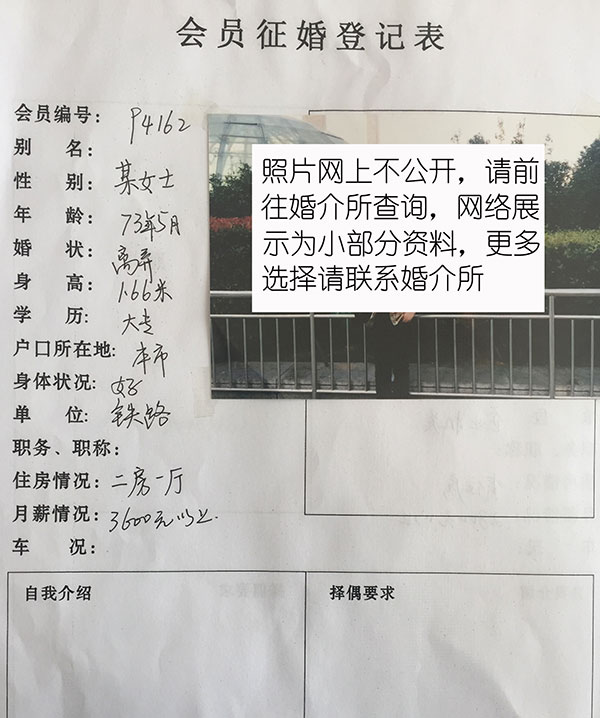 会员征婚登记表
会员编号: P4162
别 名:
性 别: 某女士
年 龄: 73年5月
婚 状: 离异
身 高: 1.66米
学 历: 大专
户口所在地: 本市
身体状况: 好
单 位: 铁路
职务、职称:
住房情况: 二房一厅
月薪情况: 3600元以上.
车 况:
照片网上不公开，请前
往婚介所查询，网络展
示为小部分资料，更多
选择请联系婚介所
自我介绍
择偶要求